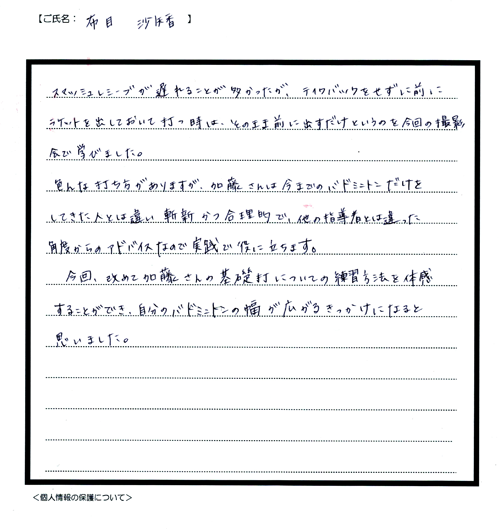 【ご氏名： 布目 沙保香 】
スマッシュレシーブが遅れることが多かったが、テイクバックをせずに前に
ラケットを出しておいて打つ時は、そのまま前に出すだけというのを今回の撮影
会で学びました。
色んな打ち方がありますが、加藤さんは今までのバドミントンだけを
してきた人とは違い斬新かつ合理的で、他の指導者とは違った
角度からのアドバイスなので実践で役に立ちます。
今回、改めて加藤さんの基礎打についての練習方法を体感
することができ、自分のバドミントンの幅が広がるきっかけになると
思いました。
＜個人情報の保護について＞